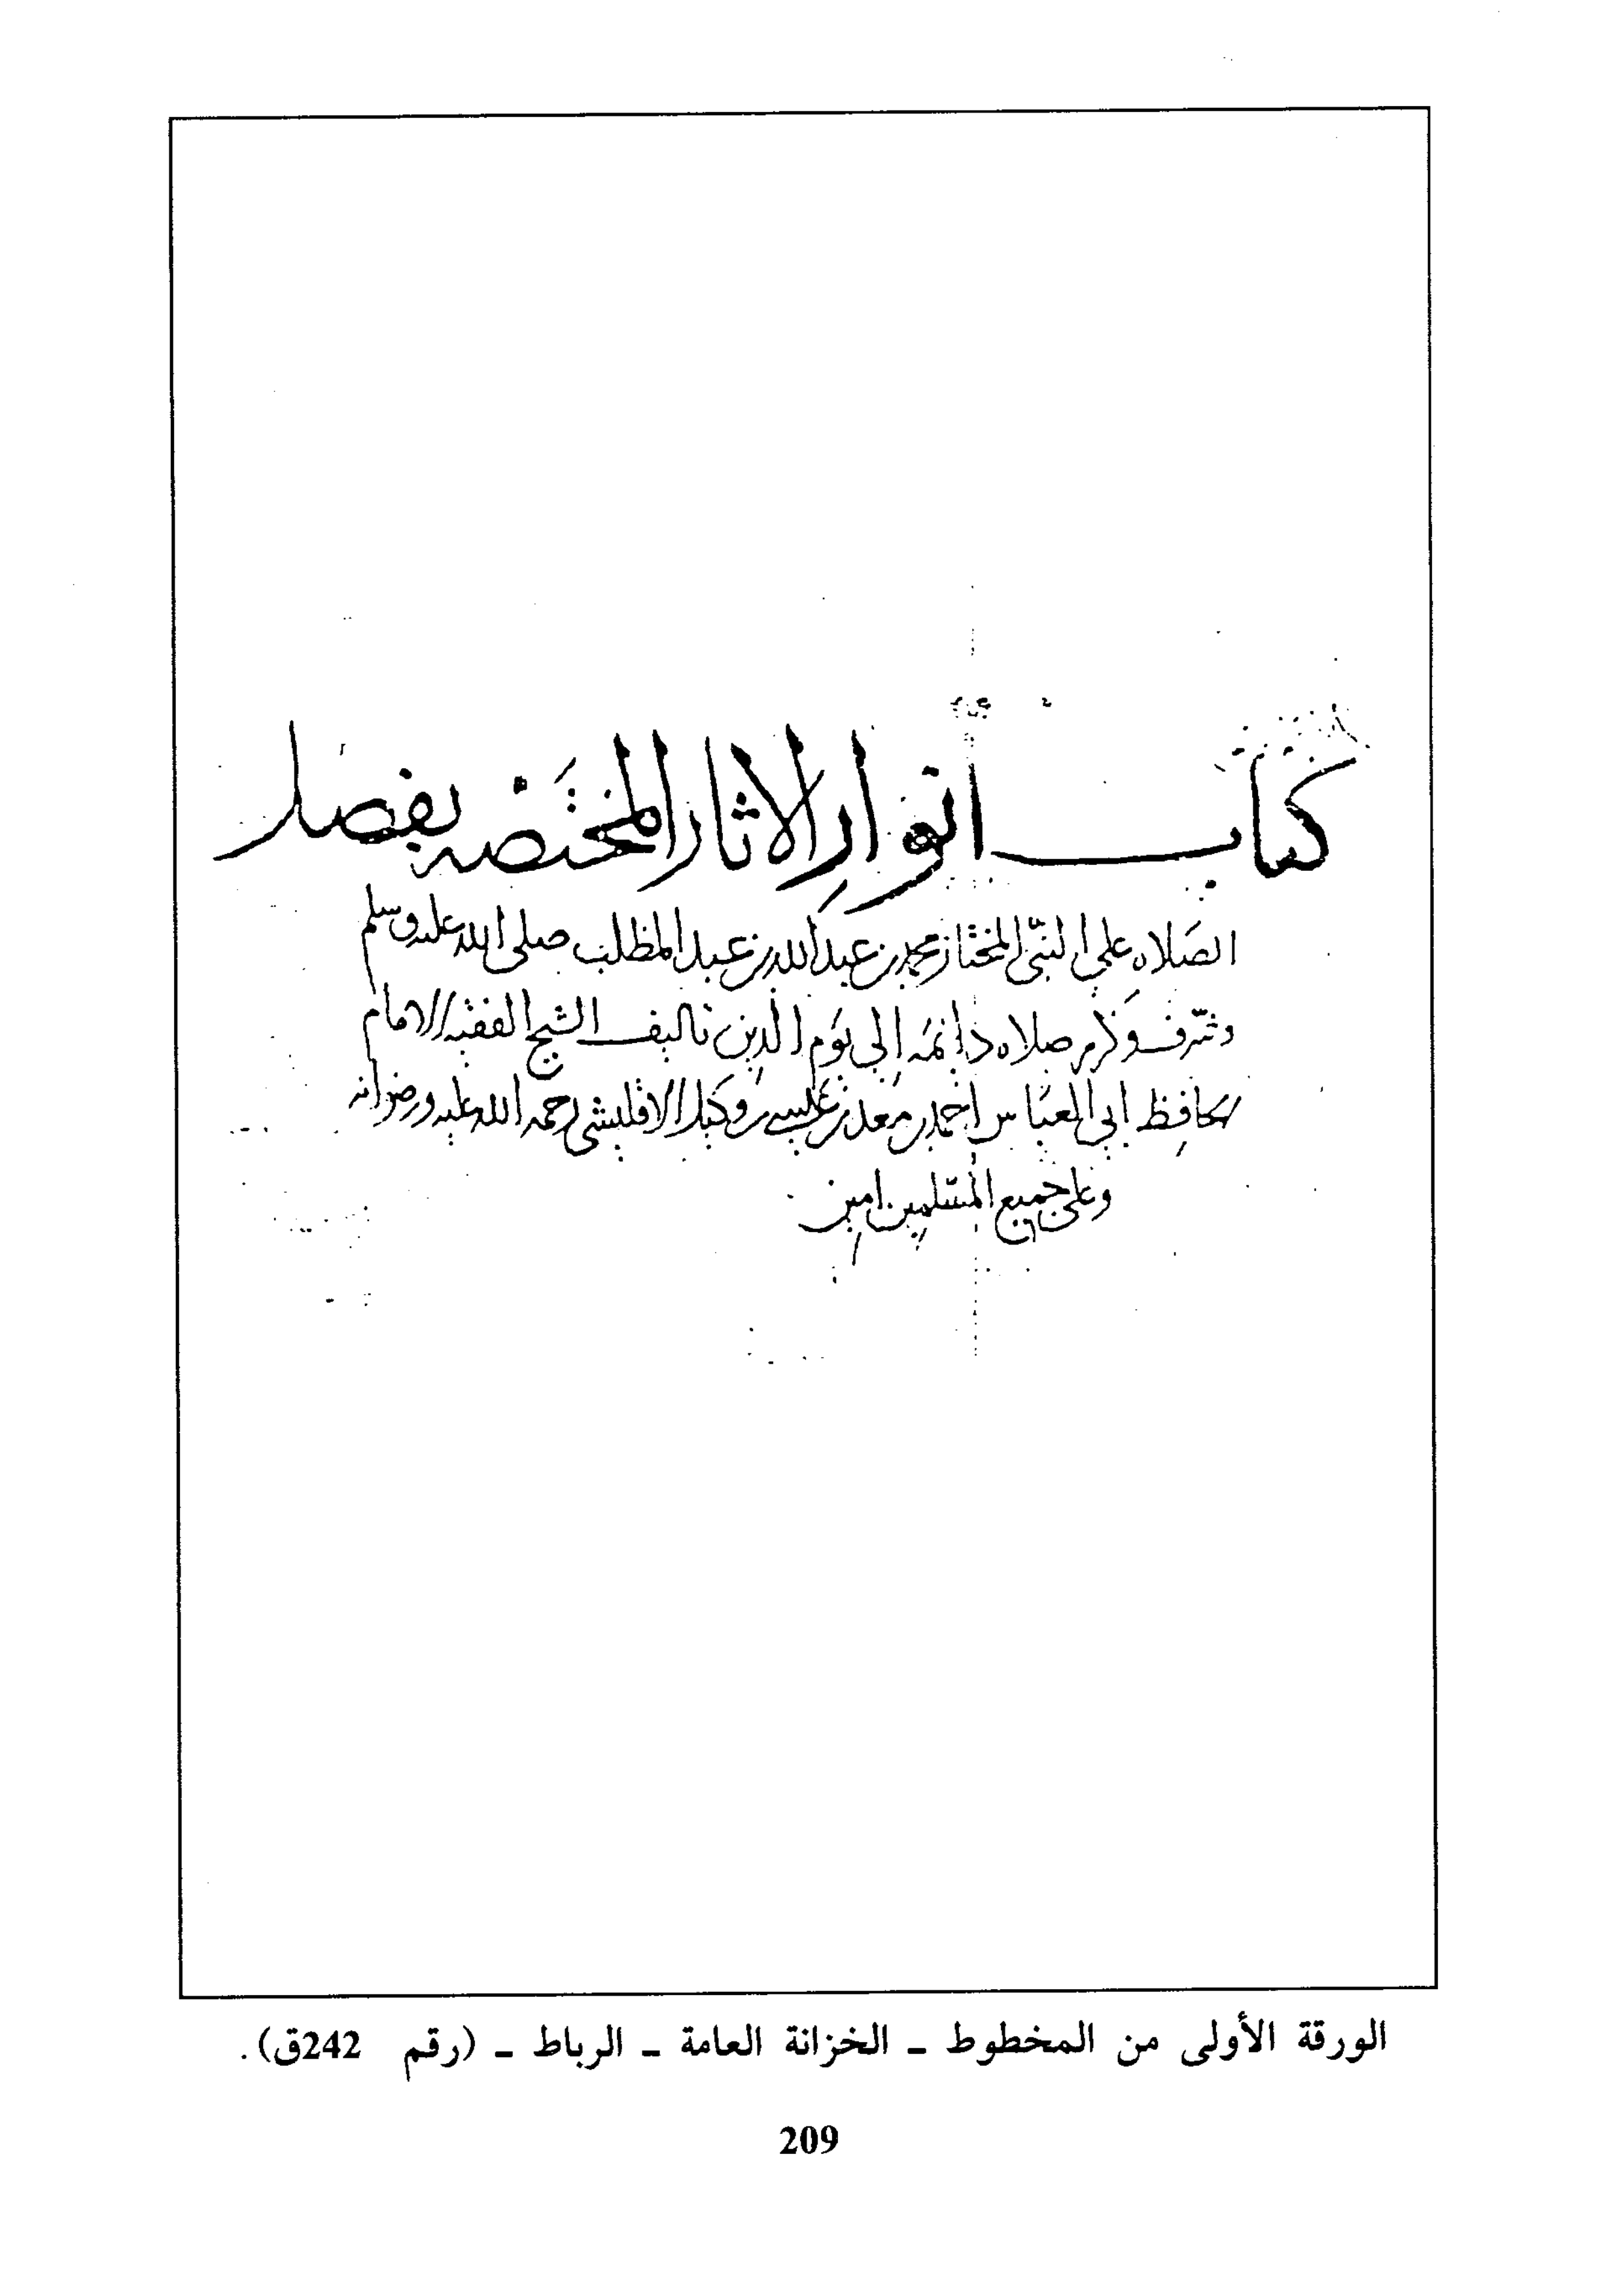 كتاب أنوار الاثار المختصه بفضل
الصلاه على النبي المختار محمد بن عبد الله بن عبد المطلب صلى الله عليه وسلم
وشرف وكرم صلاه دائمه إلى يوم الدين تاليف الشيخ الفقيه الامام
الحافظ ابي العباس احمد بن معد بن عيسى بن وكيل الاقليشي رحمه الله عليه ورضوانه
وعلى جميع المسلمين امين
الورقة الأولى من المخطوط ـ الخزانة العامة ـ الرباط ـ (رقم 242ق).
209